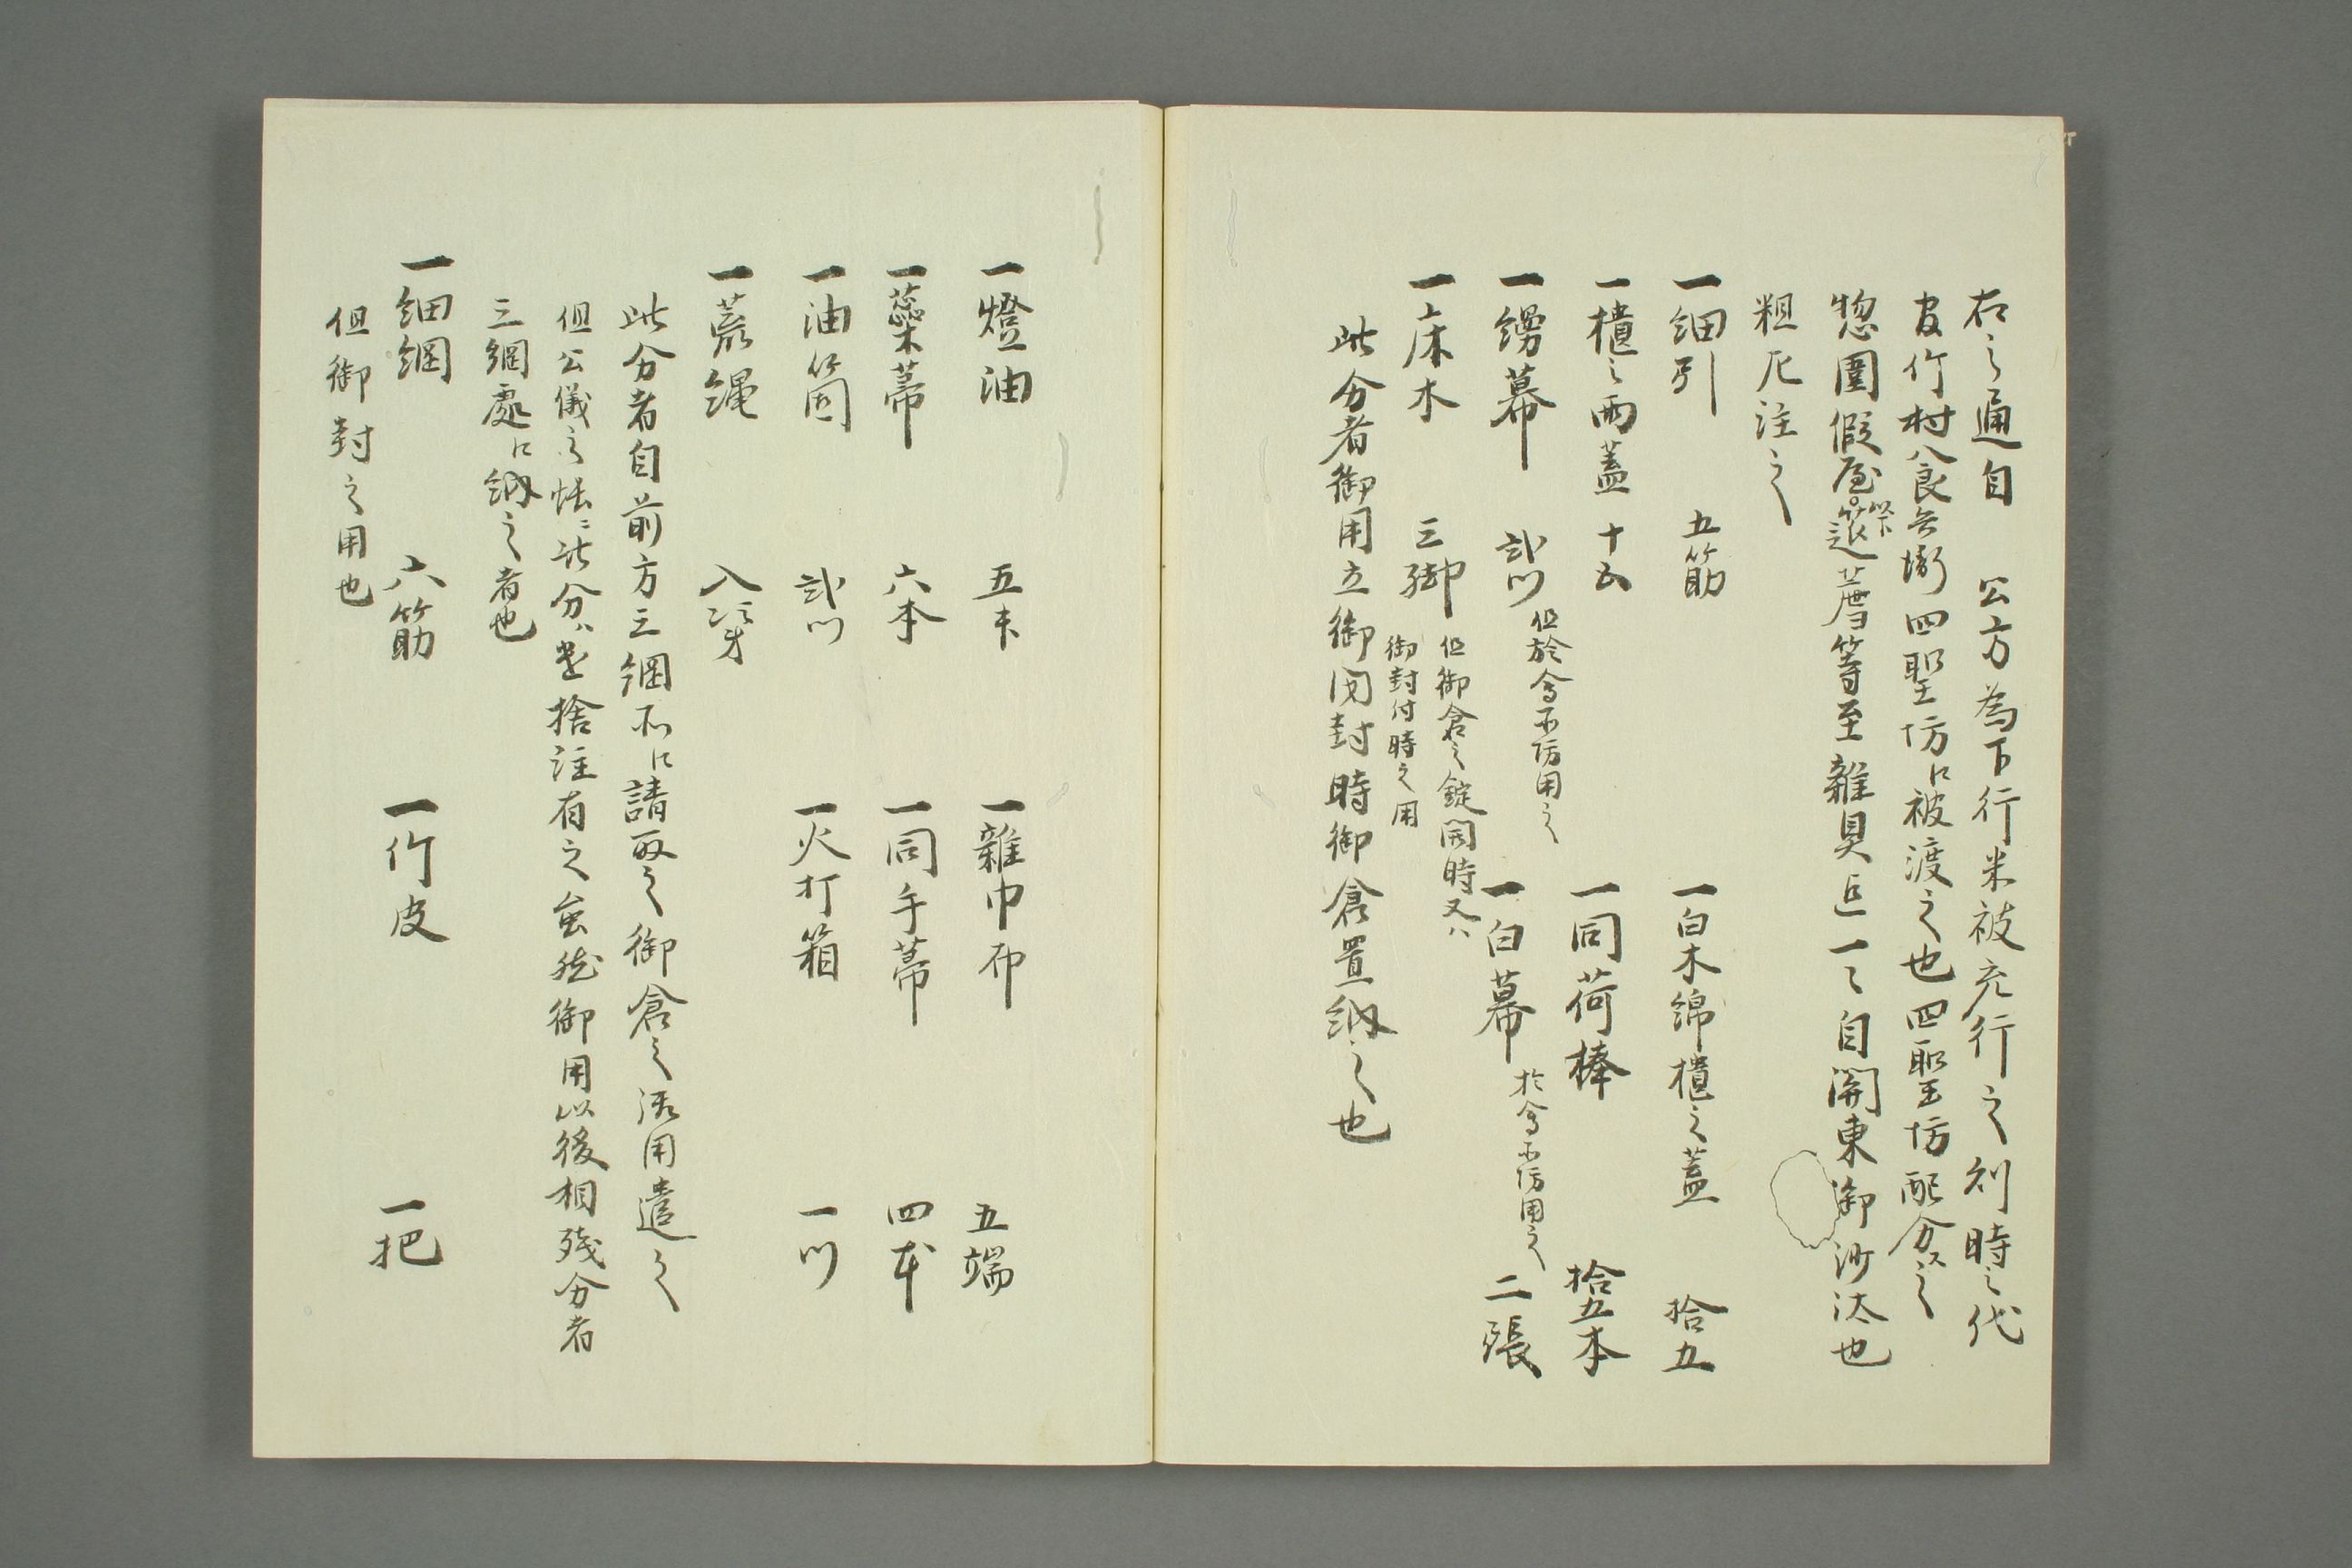 右之通自 公方為下行米被充行之剋時之代
官竹村八良兵衛四聖坊に被渡之也四聖坊配分之
惣圍假屋筵薦等至雜具迄一々自関東御沙汰也
粗尼注之
一細引 五筋 一白木綿櫃之蓋 拾五
一櫃之両蓋 十五 一同荷棒 拾五本
一縵幕 弐ツ 但於會所坊用之 一白幕 於會所坊用之 二張
一床木 三脚 但御倉之錠開時又ハ
御封付時之用
此分者御用立御閉封時御倉置納之也
一燈油 五升 一雜巾布 五端
一藁箒 六本 一同手箒 四本
一油筒 弐ツ 一火打箱 一ツ
一荒縄 八束
此分者自前方三綱所に請取之御倉之諸用遣之
但公儀之帳ニ此分ハ捨注有之虽然御用以後相残分者
三綱處に納之者也
一細綱 六筋 一竹皮 一把
但御封之用也